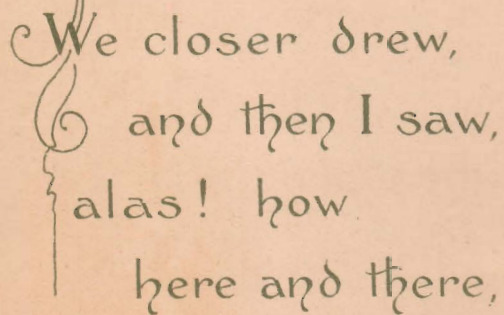 We closer drew,
and then I saw,
alas! how
here and there,